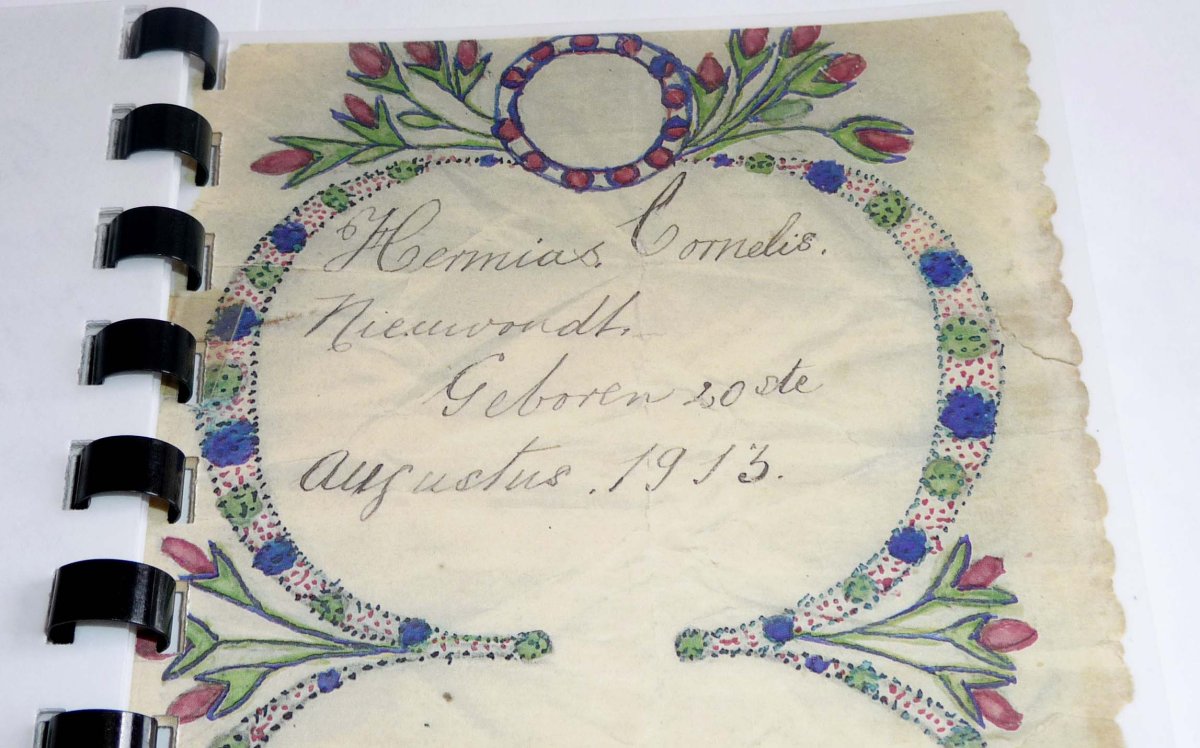 Hermias. Cornelis.
Nieuwoudt.
Geboren 20ste
Augustus. 1913.